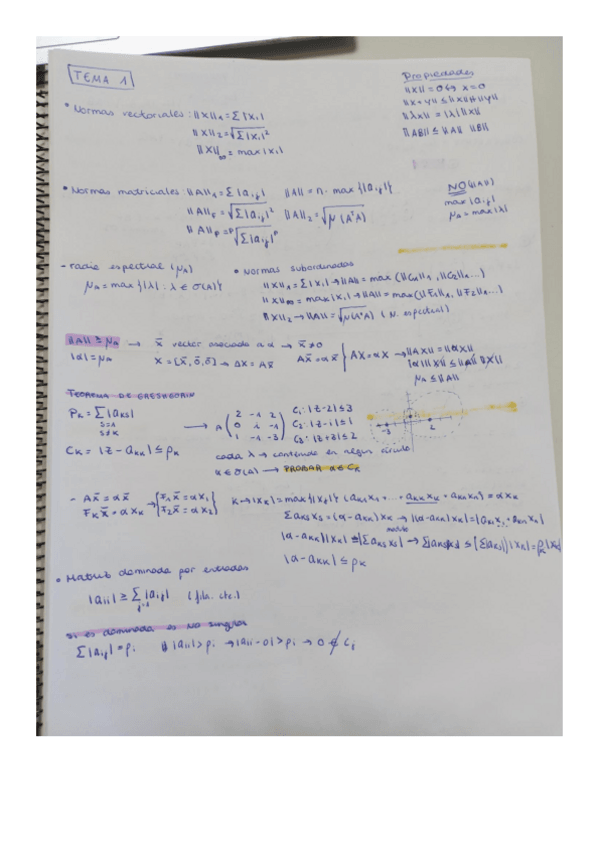 TEMA 1
Propiedades
||X|| = 0 ↔ x = 0
||X+Y|| ≤ ||X||+||Y||
||λX|| = |λ| ||X||
||AB|| ≤ ||A|| ||B||
• Normas vectoriales: ||X||₁ = Σ|Xᵢ|
||X||₂ = √Σ|Xᵢ|²
||X||∞ = max|Xᵢ|
• Normas matriciales: ||A||₁ = Σ|aᵢⱼ| ||A|| = n · max{|aᵢⱼ|}
||A||F = √Σ|aᵢⱼ|² ||A||₂ = √μ(A*A)
||A||p = ᵖ√Σ|aᵢⱼ|ᵖ
NO (||A||)
max|aᵢⱼ|
μA = max|λ|
- radio espectral (μA)
μA = max{|λ| : λ ∈ σ(A)}
• Normas subordinadas
||X||₁ = Σ|Xᵢ| → ||A|| = max(||C₁||₁, ||C₂||₁...)
||X||∞ = max|Xᵢ| → ||A|| = max(||F₁||₁, ||F₂||₁...)
||X||₂ → ||A|| = √μ(A*A) (N. espectral)
||A|| ≥ μA → x̄ vector asociado a α → x̄ ≠ 0
|α| = μA X = [x̄, ō, ō] → αX = Ax̄ Ax̄ = αx̄ } AX = αX → ||AX|| = ||αX||
|α| ||X|| ≤ ||A|| ||X||
μA ≤ ||A||
TEOREMA DE GRESHGORIN
Pₖ = Σ |aₖₛ|
s=1
s≠k
→ A ( 2 -1 2
0 i -1
1 -1 -3 )
C₁: |z-2| ≤ 3
C₂: |z-i| ≤ 1
C₃: |z+3| ≤ 2
-3
2
Cₖ = |z - aₖₖ| ≤ ρₖ
cada λ → contenido en algún círculo
α ∈ σ(A) → PROBAR α ∈ Cₖ
- Ax̄ = αx̄ → {F₁x̄ = αx₁}
Fₖx̄ = αxₖ {F₂x̄ = αx₂}
K → |Xₖ| = max{|Xp|} (aₖ₁x₁ + ... + aₖₖxₖ + aₖₙxₙ) = αxₖ
Σaₖₛxₛ = (α - aₖₖ)xₖ → |α-aₖₖ||xₖ| = |aₖ₁x₁ + aₖₙxₙ|
|α-aₖₖ||xₖ| ≤ |Σaₖₛxₛ| → Σ|aₖₛxₛ| ≤ (Σ|aₖₛ|)|xₖ| = ρₖ|xₖ|
|α-aₖₖ| ≤ ρₖ
• Matriz dominada por entradas
|aᵢᵢ| ≥ Σ|aᵢⱼ| (fila. etc.)
j=1
Si es dominada es No singular
Σ|aᵢⱼ| = ρᵢ |aᵢᵢ| > ρᵢ → |aᵢᵢ-0| > ρᵢ → 0 ∉ Cᵢ